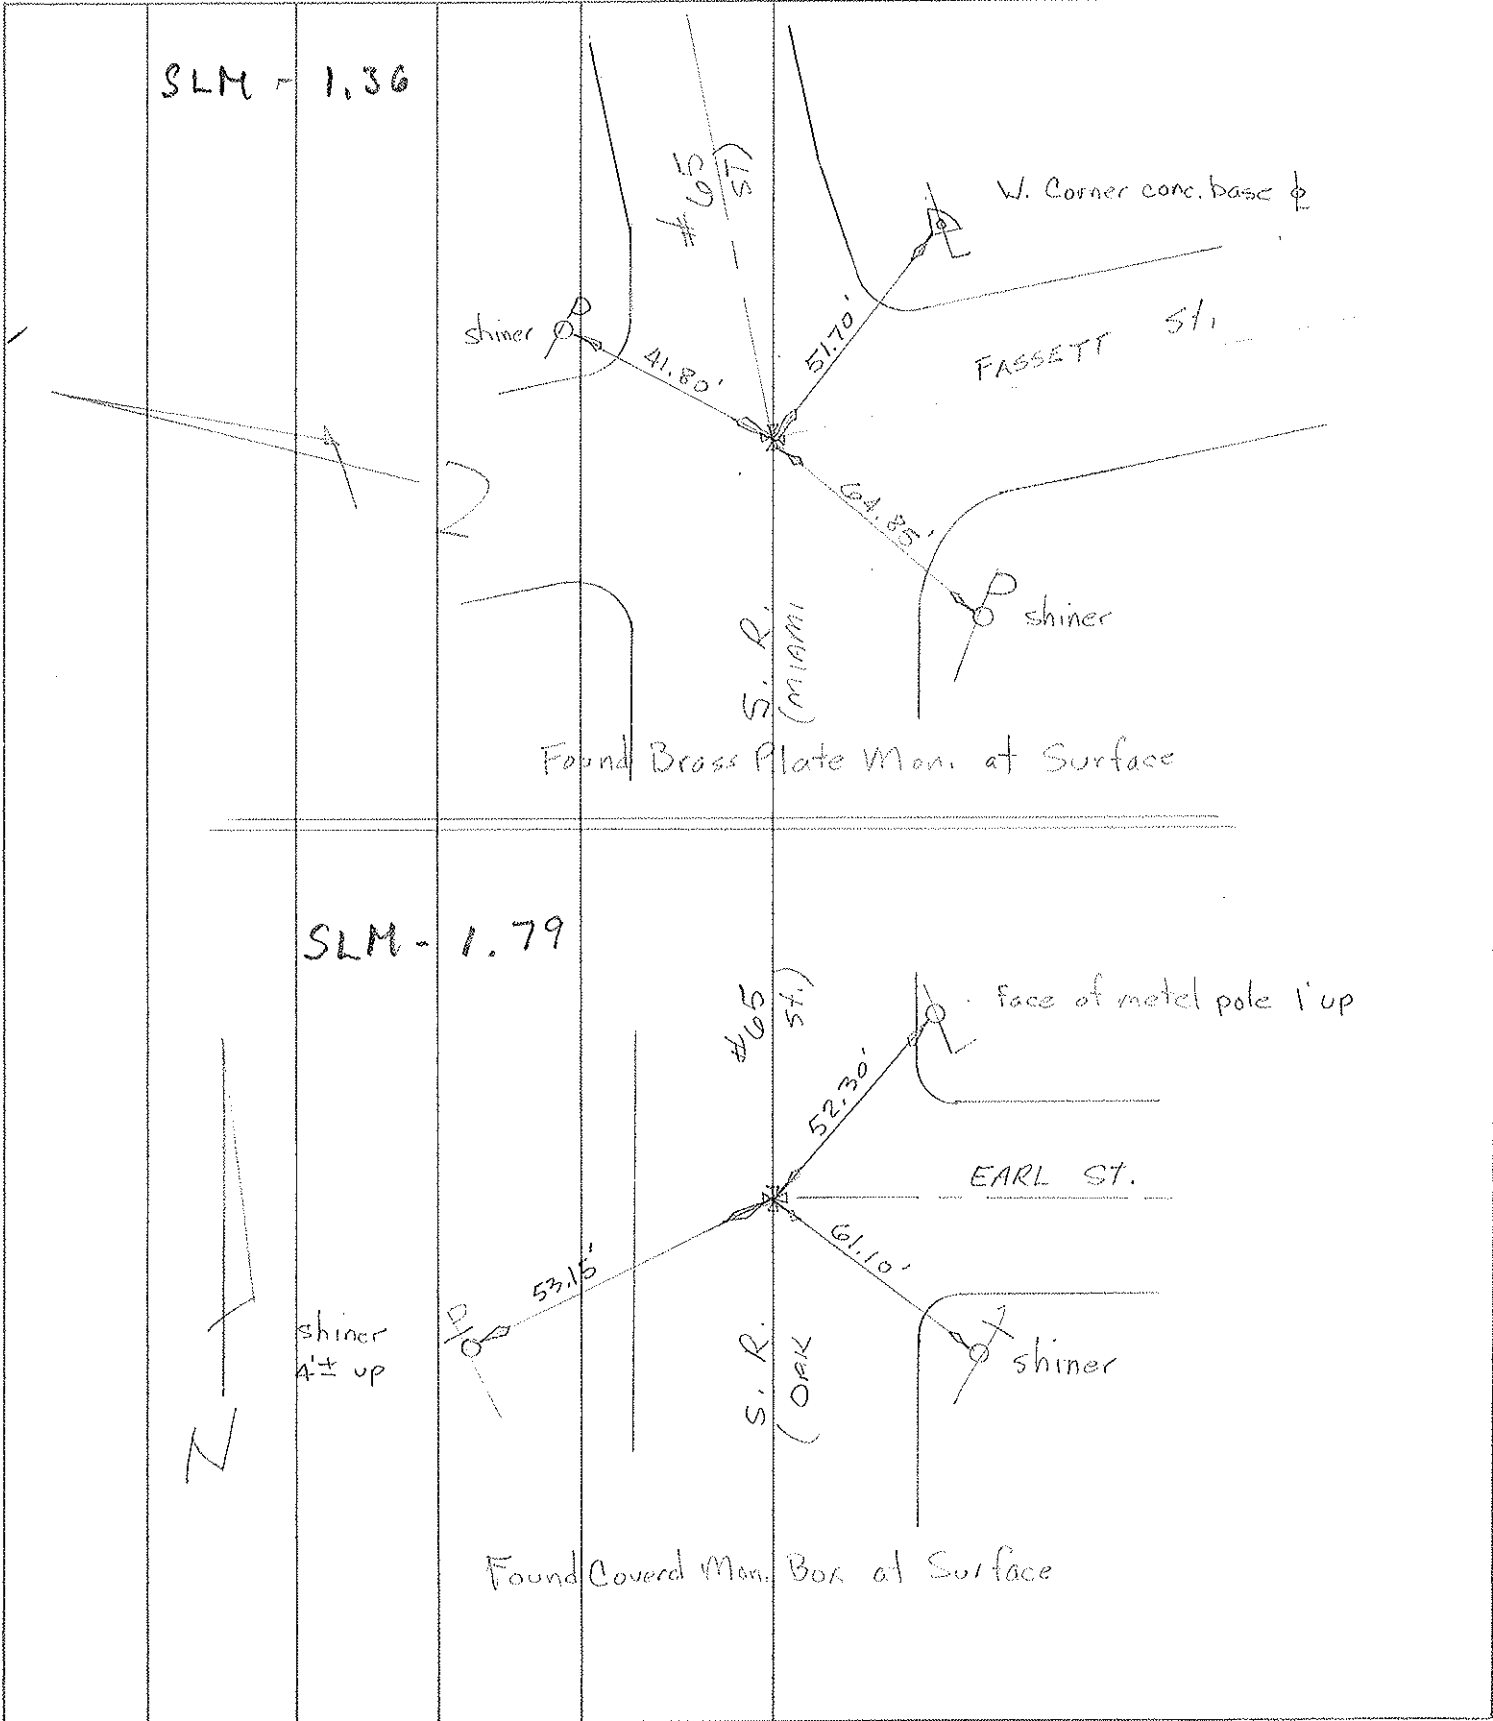 SLM - 1.36
#65
ST)
W. Corner conc. base
shiner
41.80'
51.70'
FASSETT St.
N
64.85'
shiner
S. R.
(MIAMI
Found Brass Plate Mon. at Surface
SLM - 1.79
#65
St.)
face of metel pole 1' up
52.30'
EARL ST.
53.15'
61.10'
shiner
4'± up
shiner
S. R.
(OAK
N
Found Coverd Mon. Box at Surface